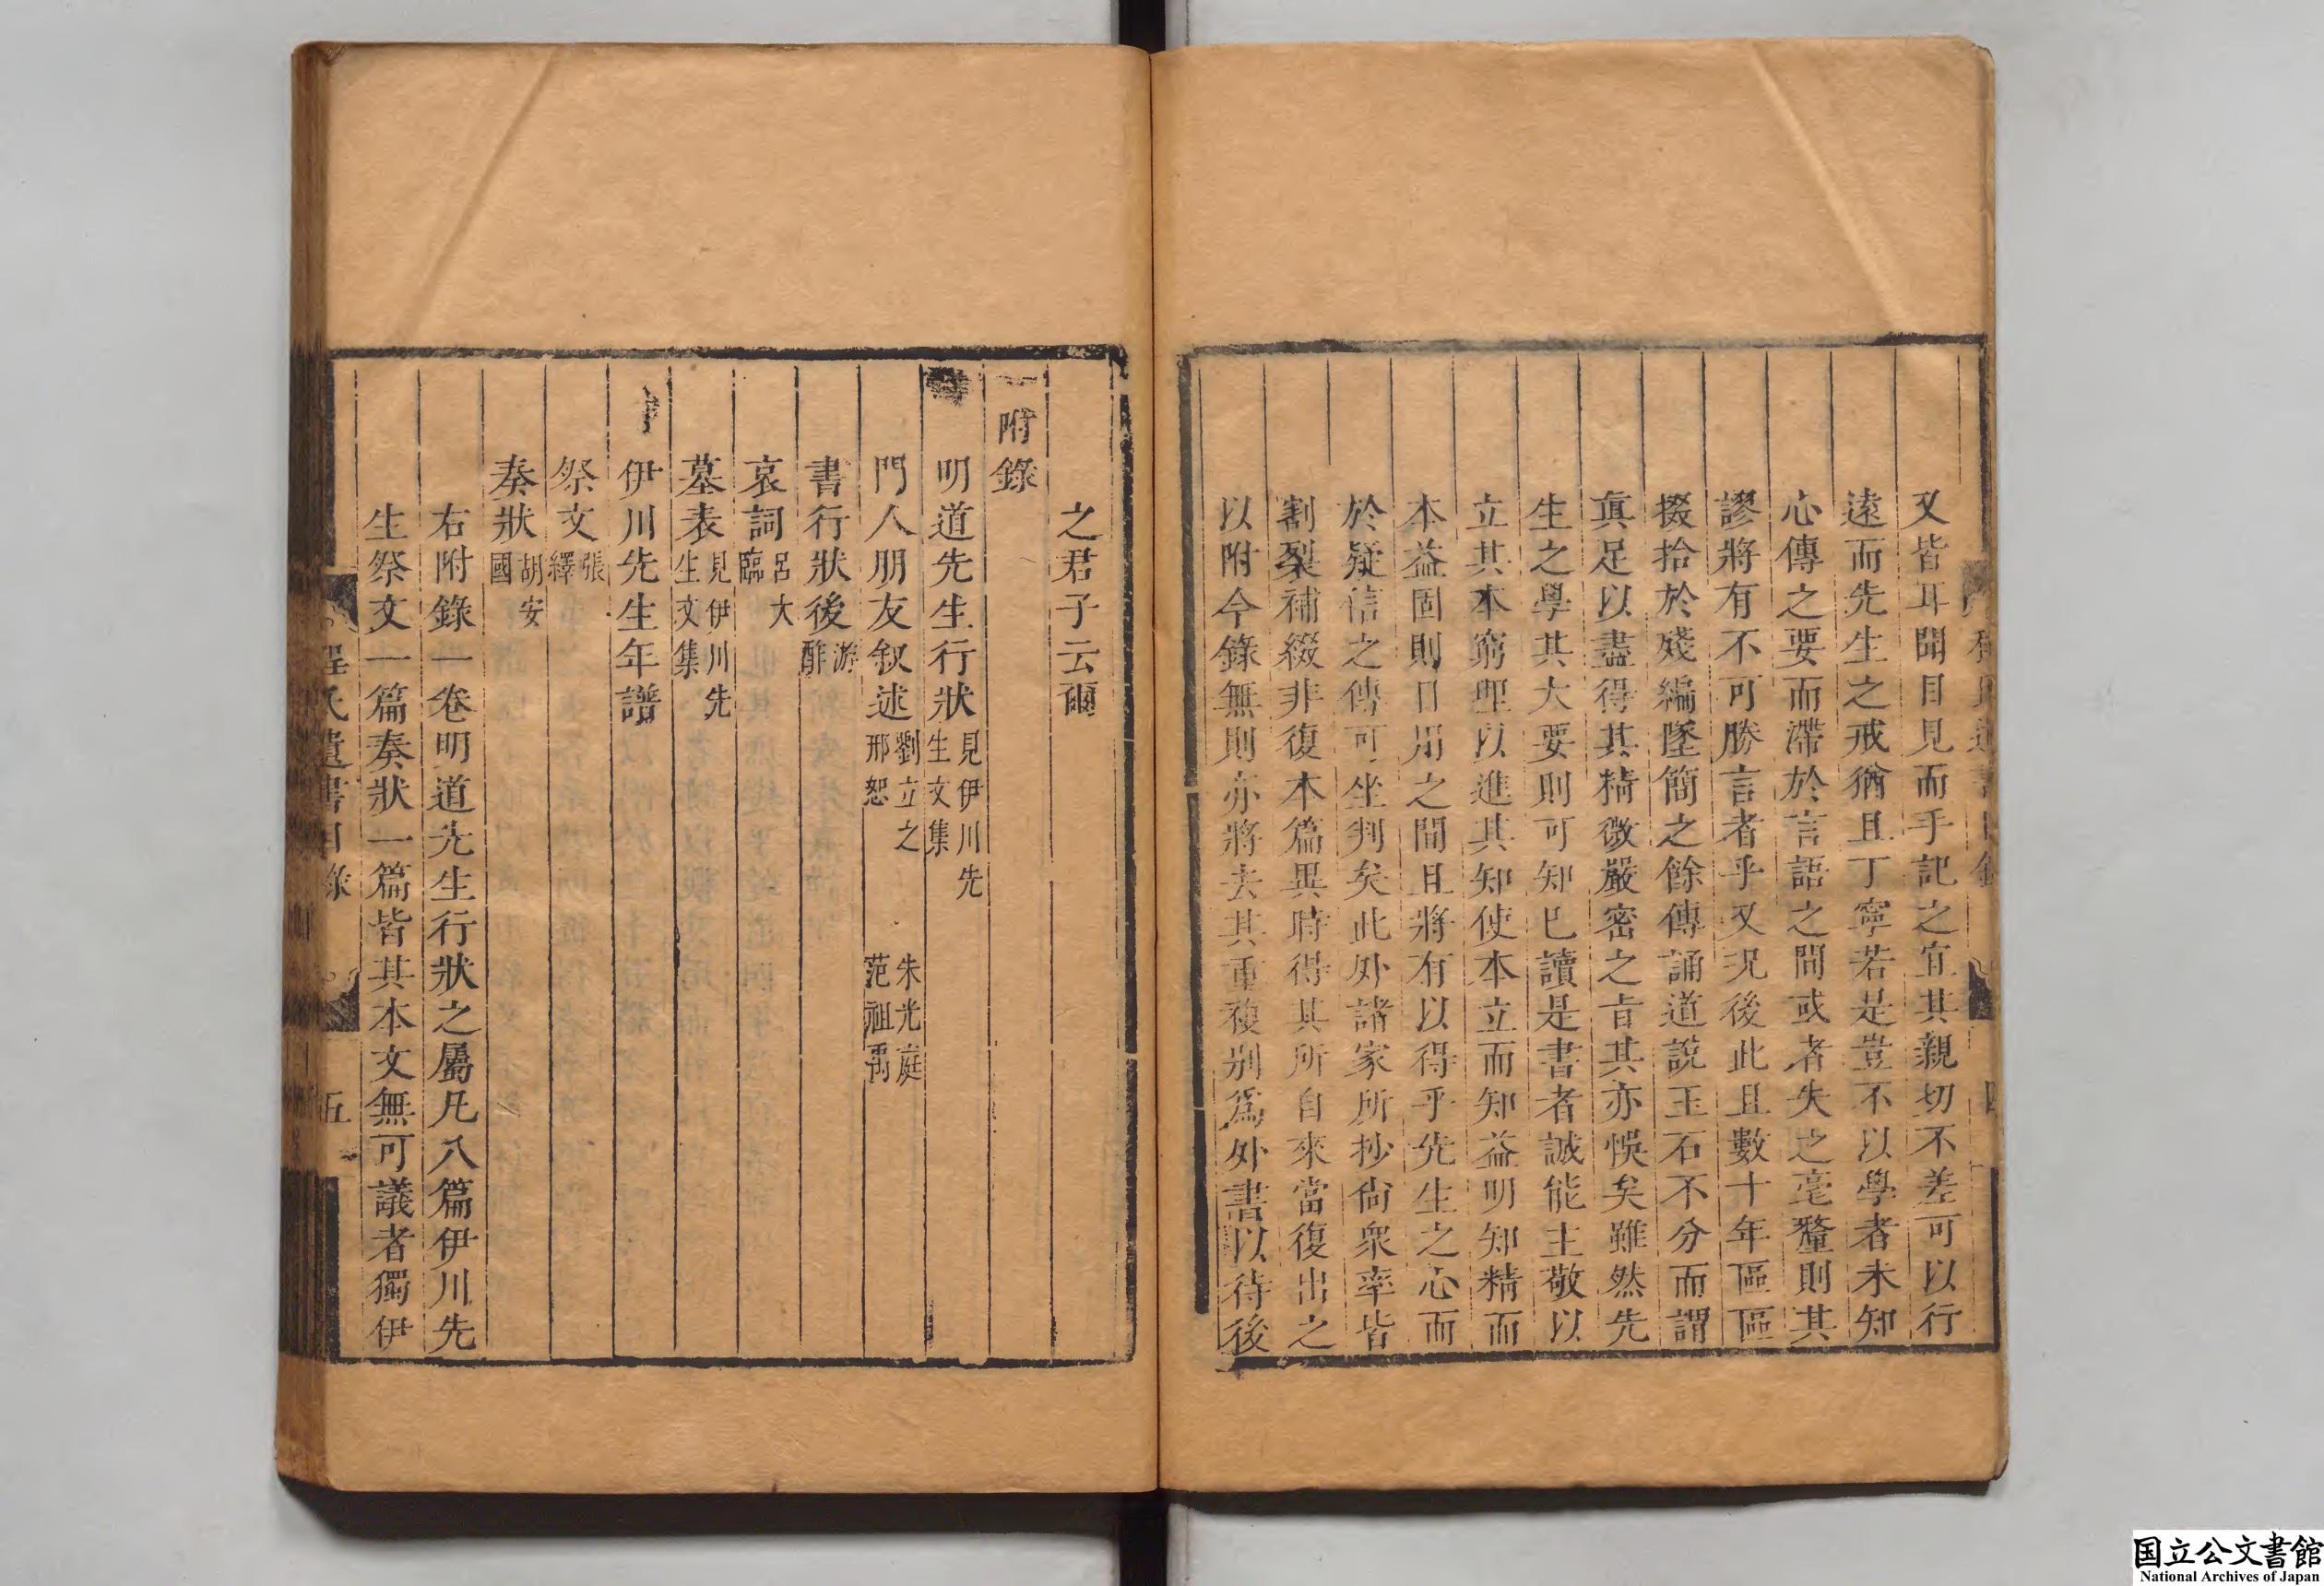 又皆耳聞目見而手記之宜其親切不差可以行
遠而先生之戒猶且丁寧若是豈不以學者未知
心傳之要而滯於言語之間或者失之毫釐則其
謬將有不可勝言者乎又况後此且數十年區區
掇拾於殘編墜簡之餘傳誦道說玉石不分而謂
真足以盡得其精微嚴密之旨其亦悞矣雖然先
生之學其大要則可知已讀是書者誠能主敬以
立其本窮理以進其知使本立而知益明知精而
本益固則日用之間且將有以得乎先生之心而
於疑信之傳可坐判矣此外諸家所抄尚衆率皆
割裂補綴非復本篇異時得其所自來當復出之
以附今錄無則亦將去其重複别爲外書以待後
之君子云爾
附錄
明道先生行狀 見伊川先生文集
門人朋友叙述 劉立之 朱光庭 邢恕 范祖禹
書行狀後 游酢
哀詞 呂大臨
墓表 見伊川先生文集
伊川先生年譜
祭文 張繹
奏狀 胡安國
右附錄一卷明道先生行狀之屬凡八篇伊川先
生祭文一篇奏狀一篇皆其本文無可議者獨伊
程氏遺書目錄
五
国立公文書館
National Archives of Japan